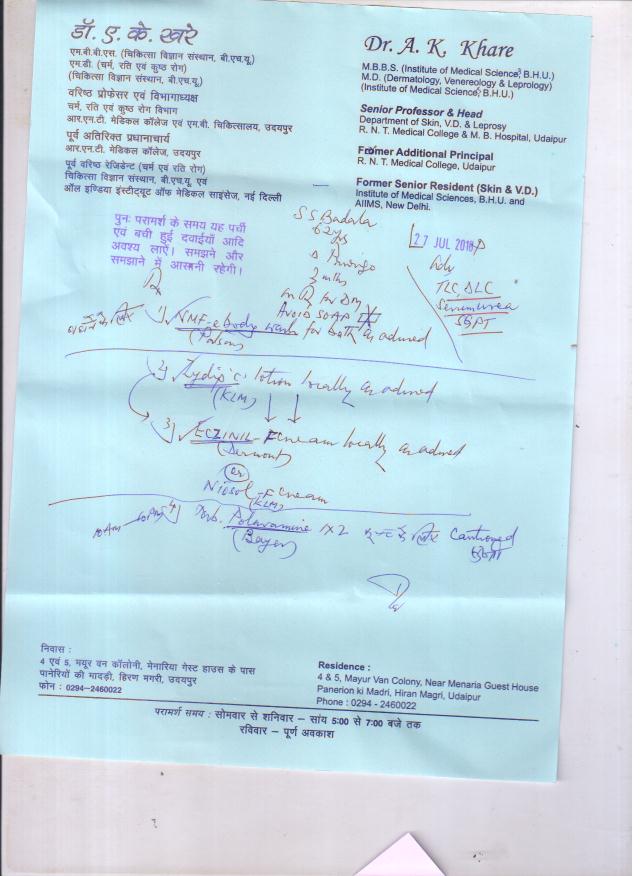 डॉ. ए. के. खरे
एम.बी.बी.एस. (चिकित्सा विज्ञान संस्थान, बी.एच.यू.)
एम.डी. (चर्म, रति एवं कुष्ठ रोग)
(चिकित्सा विज्ञान संस्थान, बी.एच.यू.)
वरिष्ठ प्रोफेसर एवं विभागाध्यक्ष
चर्म, रति एवं कुष्ठ रोग विभाग
आर.एन.टी. मेडिकल कॉलेज एवं एम.बी. चिकित्सालय, उदयपुर
पूर्व अतिरिक्त प्रधानाचार्य
आर.एन.टी. मेडिकल कॉलेज, उदयपुर
पूर्व वरिष्ठ रेजिडेन्ट (चर्म एवं रति रोग)
चिकित्सा विज्ञान संस्थान, बी.एच.यू. एवं
ऑल इण्डिया इंस्टीट्यूट ऑफ मेडिकल साइंसेज, नई दिल्ली
Dr. A. K. Khare
M.B.B.S. (Institute of Medical Science, B.H.U.)
M.D. (Dermatology, Venereology & Leprology)
(Institute of Medical Science, B.H.U.)
Senior Professor & Head
Department of Skin, V.D. & Leprosy
R. N. T. Medical College & M. B. Hospital, Udaipur
Former Additional Principal
R. N. T. Medical College, Udaipur
Former Senior Resident (Skin & V.D.)
Institute of Medical Sciences, B.H.U. and
AIIMS, New Delhi.
पुनः परामर्श के समय यह पर्ची
एवं बची हुई दवाईयाँ आदि
अवश्य लाएँ। समझने और
समझाने में आसानी रहेगी।
S S Badala
62 yrs
3 mths
on Rx for DM
AVOID SOAP
27 JUL 2018
Adv
TLC, DLC
Serum urea
SGPT
Rx
1) NMF-e body wash for bath as advised
2) Zydip c lotion locally as advised
(KLM)
3) ECZINIL-F cream locally as advised
(Dermont)
or
Niosol-F cream
(KLM)
4) Tab. Polaramine 1x2 Cautioned
(Bayer)
10 AM 10 PM
निवास :
4 एवं 5, मयूर वन कॉलोनी, मेनारिया गेस्ट हाउस के पास
पानेरियों की मादड़ी, हिरण मगरी, उदयपुर
फोन : 0294-2460022
Residence :
4 & 5, Mayur Van Colony, Near Menaria Guest House
Panerion ki Madri, Hiran Magri, Udaipur
Phone : 0294 - 2460022
परामर्श समय : सोमवार से शनिवार – सांय 5:00 से 7:00 बजे तक
रविवार – पूर्ण अवकाश